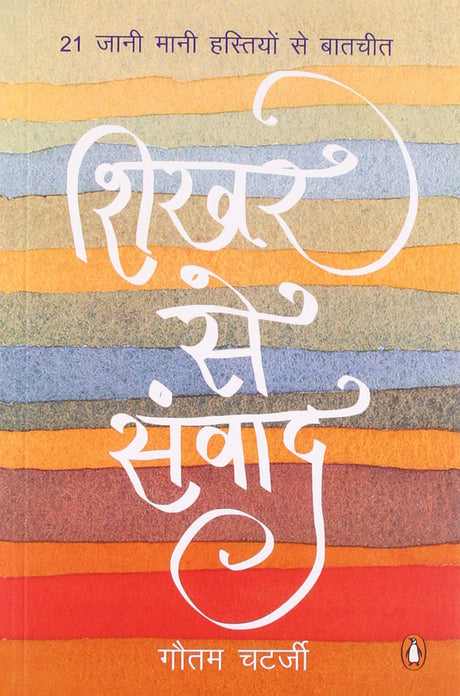 21 जानी मानी हस्तियों से बातचीत
शिखर
से
संवाद
गौतम चटर्जी